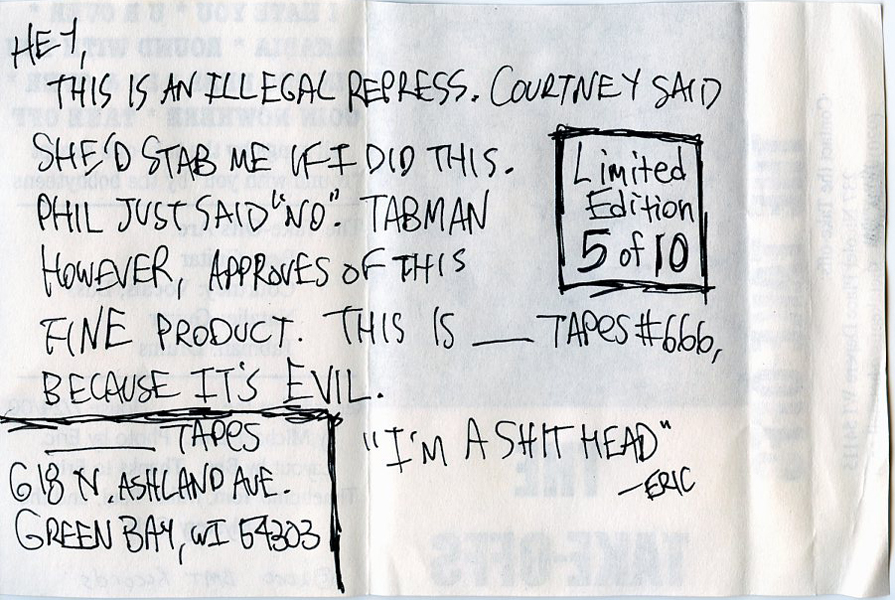 HEY,
THIS IS AN ILLEGAL REPRESS. COURTNEY SAID
SHE'D STAB ME IF I DID THIS.
PHIL JUST SAID "NO". TABMAN
HOWEVER, APPROVES OF THIS
FINE PRODUCT. THIS IS ___ TAPES #666,
BECAUSE IT'S EVIL.
Limited
Edition
5 of 10
_____ TAPES
618 N. ASHLAND AVE.
GREEN BAY, WI 54303
"I'M A SHIT HEAD"
—ERIC
THE
TAKE-OFFS